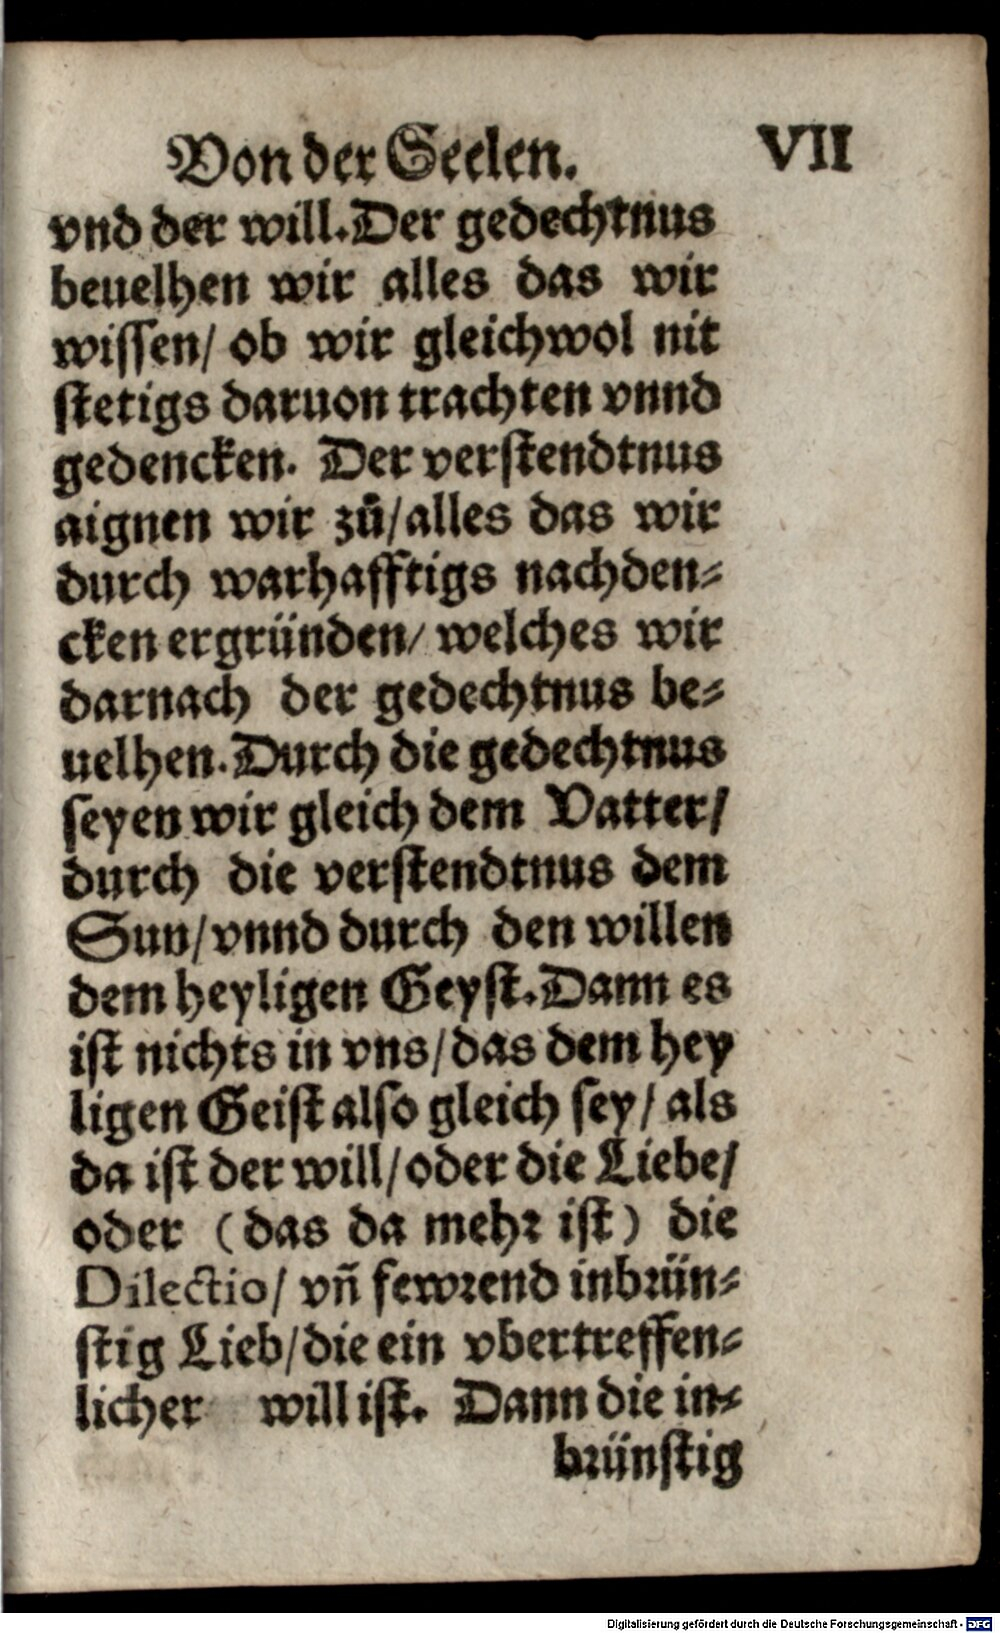 Von der Seelen. VII
vnd der will. Der gedechtnus
beuelhen wir alles das wir
wissen/ ob wir gleichwol nit
stetigs daruon trachten vnnd
gedencken. Der verstendtnus
aignen wir zů/ alles das wir
durch warhafftigs nachden-
cken ergründen/ welches wir
darnach der gedechtnus be-
uelhen. Durch die gedechtnus
seyen wir gleich dem Vatter/
durch die verstendtnus dem
Sun/ vnnd durch den willen
dem heyligen Geyst. Dann es
ist nichts in vns/ das dem hey
ligen Geist also gleich sey/ als
da ist der will/ oder die Liebe/
oder (das da mehr ist) die
Dilectio/ vñ fewrend inbrün-
stig Lieb/ die ein vbertreffen-
licher will ist. Dann die in-
brünstig
Digitalisierung gefördert durch die Deutsche Forschungsgemeinschaft - DFG